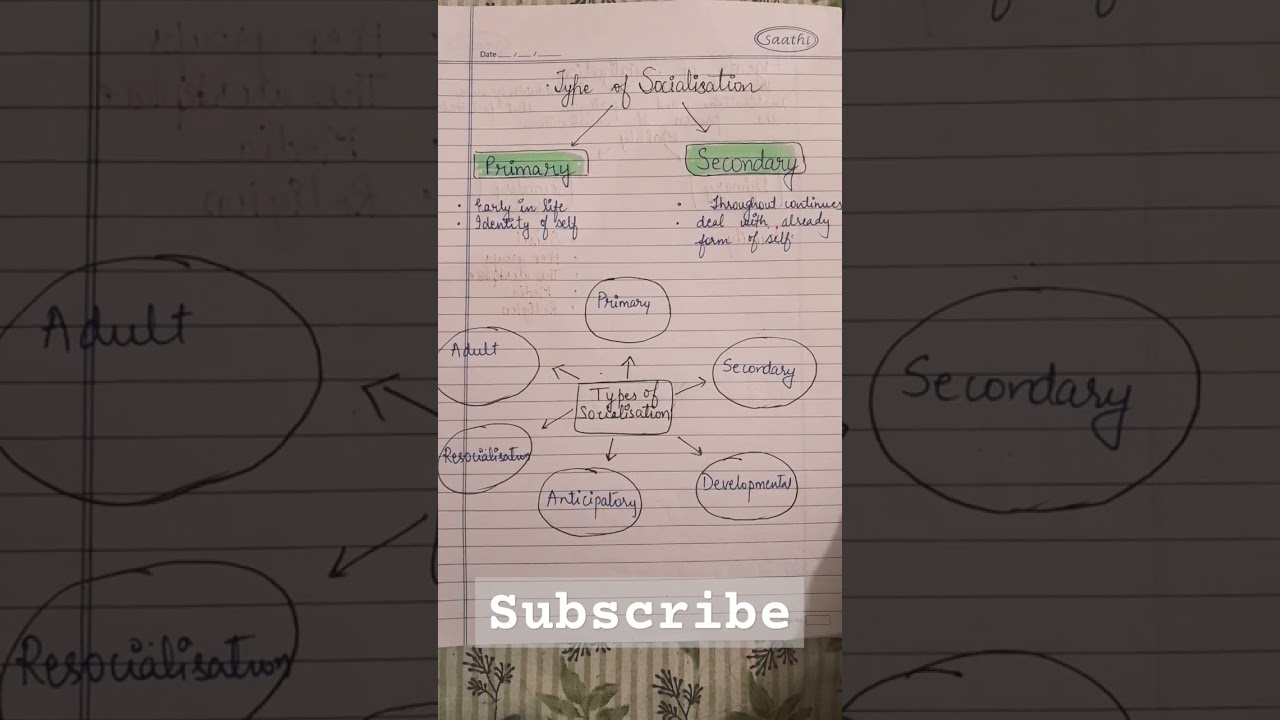 saathi
Date __/__/__
Type of Socialisation
Primary
Secondary
• Early in life
• Identity of self
• Throughout continues
• deal with already
form of self.
Primary
Adult
Secondary
Types of
Socialisation
Resocialisation
Anticipatory
Developmental
Subscribe
Adult
Resocialisation
Secondary